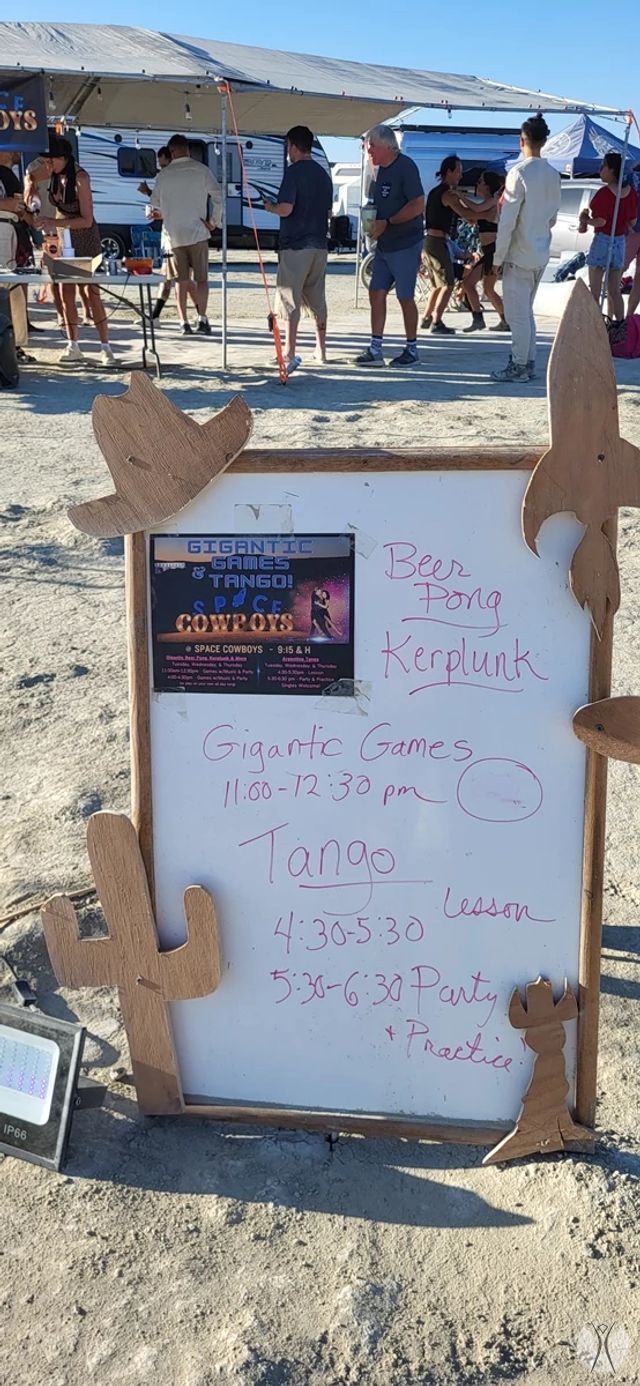 CE
OYS
GIGANTIC
GAMES
& TANGO!
SPACE
COWBOYS
@ SPACE COWBOYS - 9:15 & H
Gigantic Beer Pong, Kerplunk & More
Tuesday, Wednesday & Thursday
11:00am-12:30pm - Games w/Music & Party
4:00-4:30pm - Games w/Music & Party
Argentine Tango
Tuesday, Wednesday & Thursday
4:30-5:30pm - Lesson
5:30-6:30 pm - Party & Practice
Singles Welcome!
Beer
Pong
Kerplunk
Gigantic Games
11:00-12:30 pm
Tango
Lesson
4:30-5:30
5:30-6:30 Party
+ Practice!
IP66